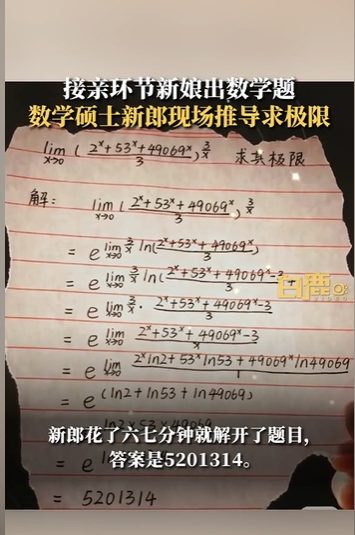 接亲环节新娘出数学题
数学硕士新郎现场推导求极限
lim x→0 (2^x+53^x+49069^x / 3)^(3/x) 求其极限
解: lim x→0 (2^x+53^x+49069^x / 3)^(3/x)
= e^(lim x→0 3/x ln(2^x+53^x+49069^x / 3))
= e^(lim x→0 3/x ln(2^x+53^x+49069^x-3
白鹿
VIDEO
= e^(lim x→0 3/x · 2^x+53^x+49069^x-3 / 3)
= e^(lim x→0 2^x+53^x+49069^x-3 / x)
= e^(lim x→0 2^x ln2+53^x ln53+49069^x ln49069 / 1)
= e^(ln2+ln53+ln49069)
新郎花了六七分钟就解开了题目,
答案是5201314。
= e
= 5201314